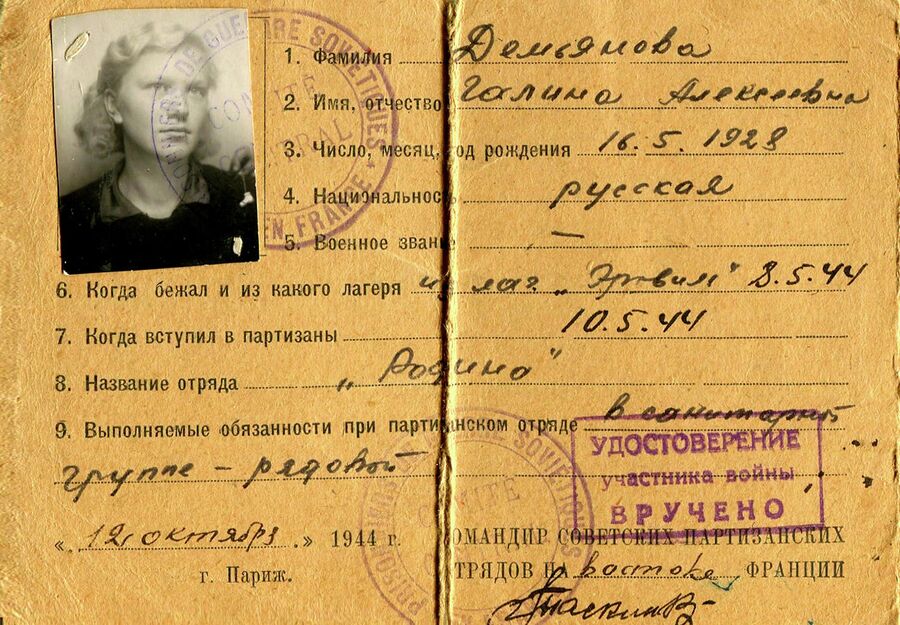 1. Фамилия Демьянова
2. Имя, отчество Галина Алексеевна
3. Число, месяц, год рождения 16.5.1928
4. Национальность русская
5. Военное звание —
6. Когда бежал и из какого лагеря из лаг. „Эрвиль" 8.5.44
7. Когда вступил в партизаны 10.5.44
8. Название отряда „Родина"
9. Выполняемые обязанности при партизанском отряде в санитарной
группе - рядовой
УДОСТОВЕРЕНИЕ
участника войны
ВРУЧЕНО
«12 октября» 1944 г.
г. Париж.
КОМАНДИР СОВЕТСКИХ ПАРТИЗАНСКИХ
ОТРЯДОВ НА востоке ФРАНЦИИ
DE GUERRE SOVIETIQUES
EN FRANCE
COMITE
CENTRAL
PRISONNIERS DE GUERRE SOVIETIQUES
COMITE